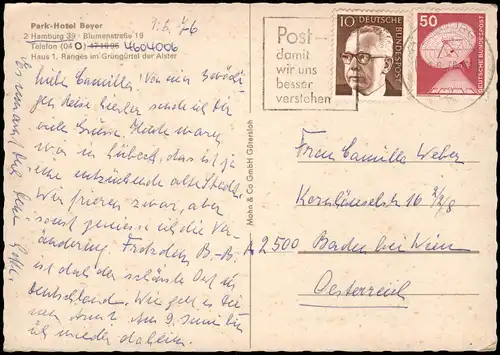 Park-Hotel Beyer
2 Hamburg 39 · Blumenstraße 19
Telefon (040) 47 10 95 4604006
Haus 1. Ranges im Grüngürtel der Alster
1.6.76
Liebe Camilla! Von einer
Reise hierher sende ich Dir
viele Grüsse. Heute waren
wir in Lübeck, das ist ja
eine entzückende alte Stadt.
Wir frieren zwar, aber
sonst geniesse ich die Ver-
änderung. Trotzdem B.-B.
ist doch der schönste Ort in
Deutschland. Wie geht es Dei-
nem Am 9. Juni bin
ich wieder daheim.
Es umarmt Dich Deine
Mohn & Co GmbH Gütersloh
Post -
damit
wir uns
besser
verstehen
10 DEUTSCHE BUNDESPOST
50 DEUTSCHE BUNDESPOST
Frau Camilla Weber
A 2500 Baden bei Wien
Oesterreich